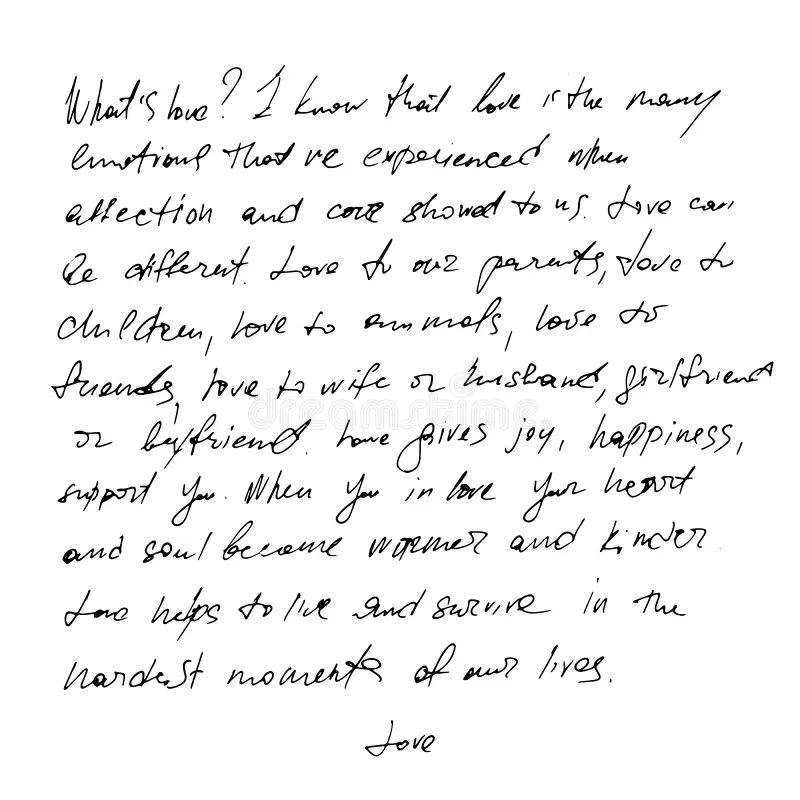 What's love? I know that love is the many
emotions that we experienced when
affection and care showed to us. Love can
be different. Love to our parents, love to
children, love to animals, love to
friends, love to wife or husband, girlfriend
or boyfriend. Love gives joy, happiness,
support you. When you in love your heart
and soul become warmer and kinder.
Love helps to live and survive in the
hardest moments of our lives.
Love
dreamstime